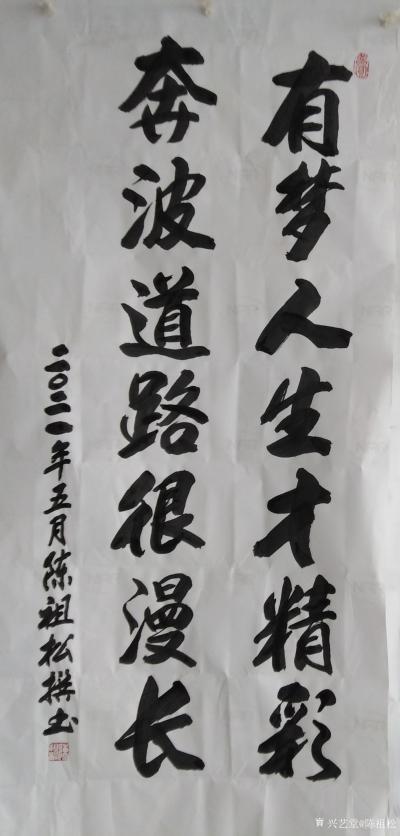 有梦人生才精彩
奔波道路很漫长
二〇二一年五月陈祖松撰书
兴艺堂@陈祖松